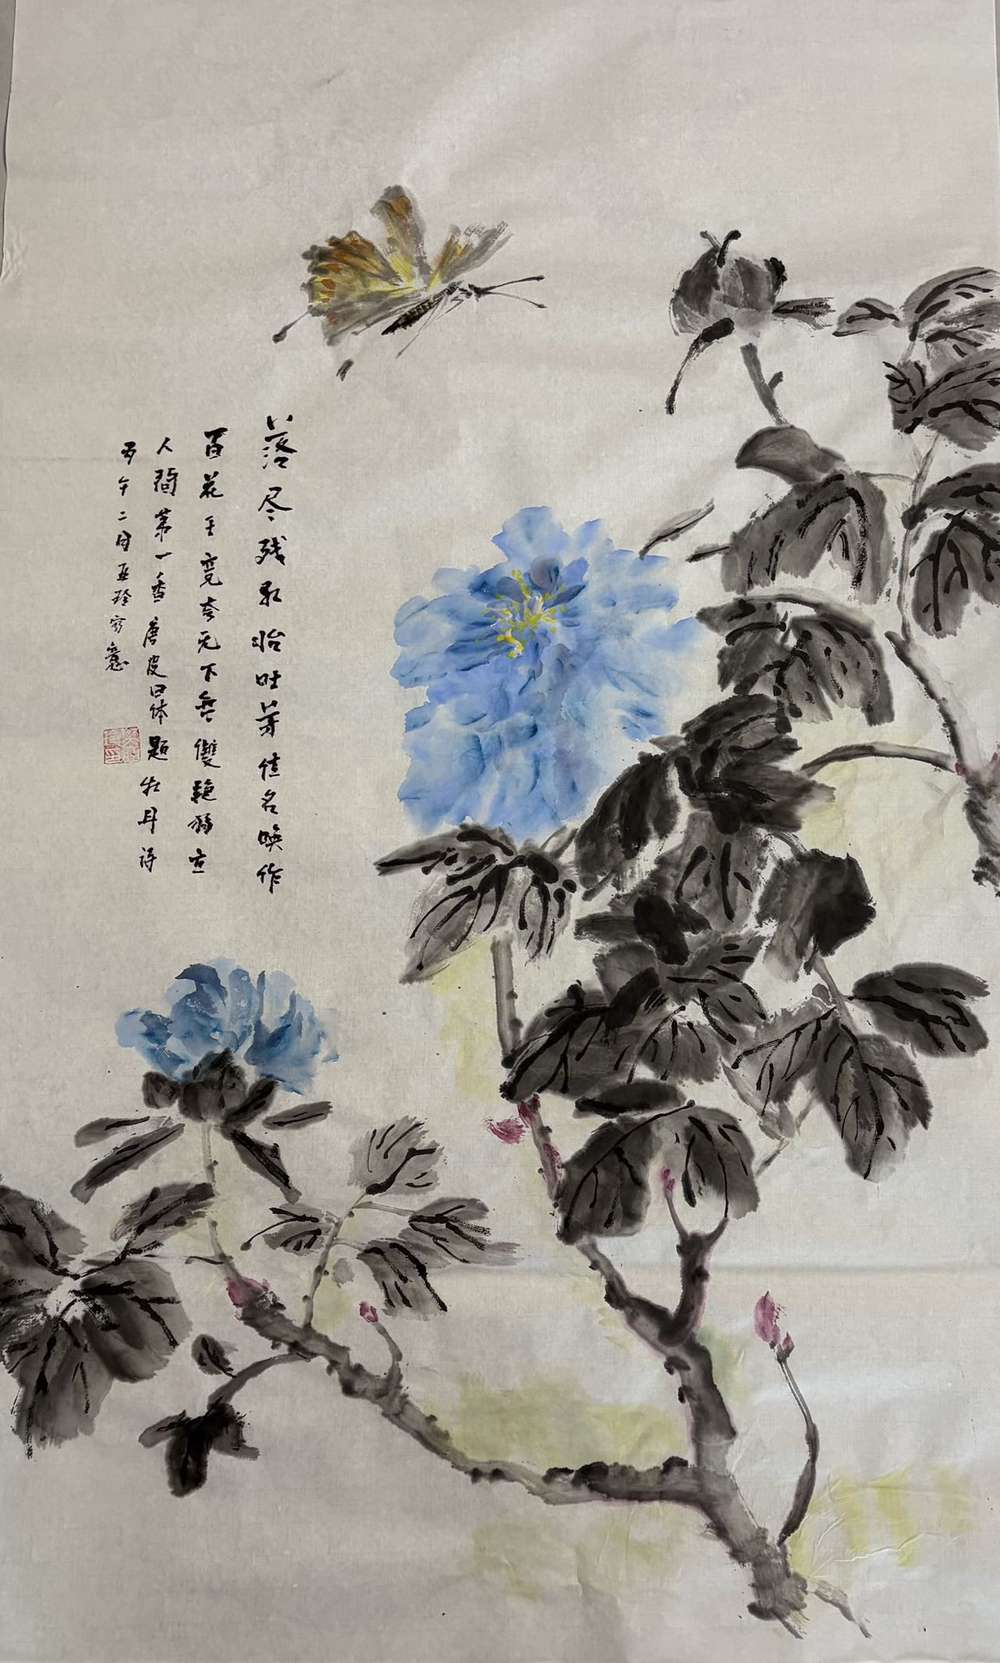 落尽残红始吐芳佳名唤作
百花王竞夸天下無雙艳独立
人间第一香 唐皮日休題牡丹诗
丙午二月亚珍写意